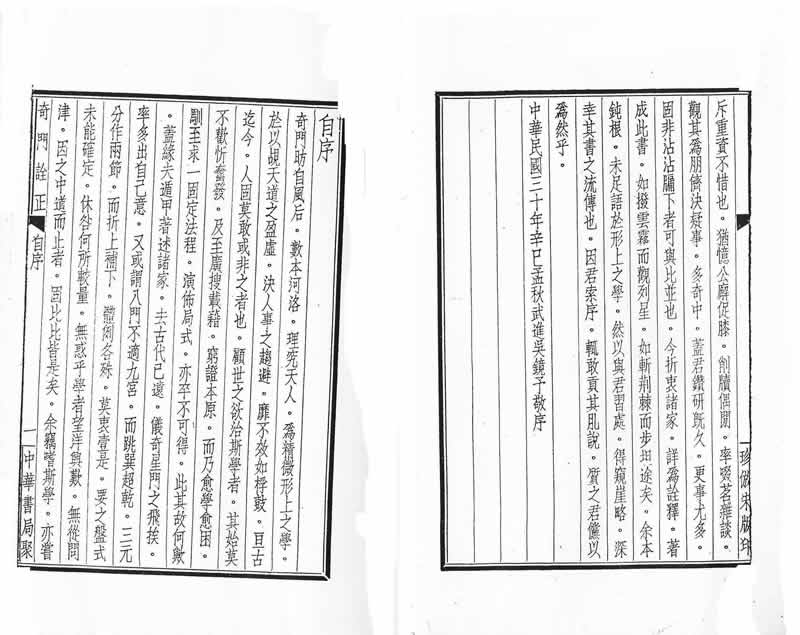 斥重資不惜也。猶憶公廨促膝。削牘偶閒。率啜茗雜談。
觀其為朋儕決疑事。多奇中。蓋君鑽研既久。更事尤多。
固非沾沾牖下者可與比並也。今折衷諸家。詳為詮釋。著
成此書。如撥雲霧而觀列星。如斬荆棘而步坦途矣。余本
鈍根。未足語於形上之學。然以與君習處。得窺崖略。深
幸其書之流傳也。因君索序。輒敢貢其肊說。質之君儻以
為然乎。
中華民國三十年辛巳孟秋武進吳鏡予敬序
珍倣宋版印
自序
奇門昉自風后。數本河洛。理究天人。為精微形上之學。
於以覘天道之盈虛。決人事之趨避。靡不效如桴鼓。亘古
迄今。人固莫敢或非之者也。顧世之欲治斯學者。其始莫
不歡忻奮發。及至廣搜載籍。窮證本原。而乃愈學愈困。
馴至求一固定法程。演佈局式。亦卒不可得。此其故何歟
。蓋緣夫遁甲著述諸家。去古代已遠。儀奇星門之飛挨。
率多出自己意。又或謂八門不適九宮。而跳巽超乾。三元
分作兩節。而折上補下。體例各殊。莫衷壹是。要之盤式
未能確定。休咎何所較量。無惑乎學者望洋興歎。無從問
津。因之中道而止者。固比比皆是矣。余竊嗜斯學。亦嘗
奇門詮正
自序
一
中華書局聚